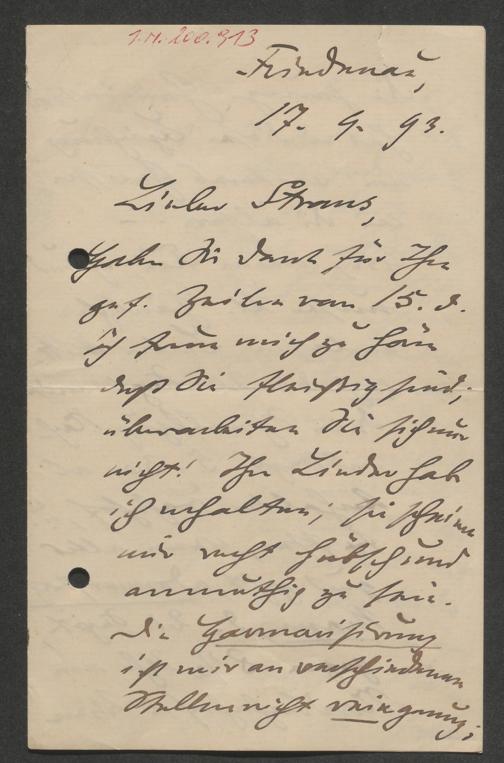 I.N. 200.913
Friedenau,
17. 9. 93.
Lieber Straus,
Haben Sie Dank für Ihre
gef. Zeilen vom 15. d.
ich freue mich zu hören
daß Sie fleißig sind;
überarbeiten Sie sich nur
nicht! Ihre Lieder habe
ich erhalten; sie scheinen
mir recht hübsch und
anmuthig zu sein.
Die Harmonisirung
ist mir an verschiedenen
Stellen nicht rein genug;